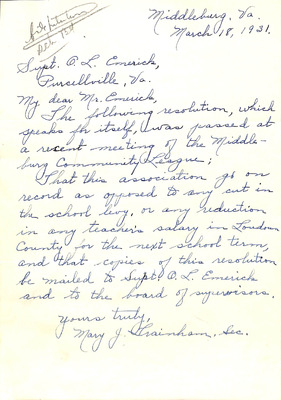 Middleburg, Va.
March 18, 1931.
Supt. O. L. Emerick,
Purcellville, Va.
My dear Mr. Emerick,
The following resolution, which
speaks for itself, was passed at
a recent meeting of the Middle-
burg Community League:
That this association go on
record as opposed to any cut in
the school levy, or any reduction
in any teacher's salary in Loudoun
County for the next school term,
and that copies of this resolution
be mailed to Supt. O. L. Emerick
and to the board of supervisors.
Yours truly,
Mary J. Trainham, Sec.